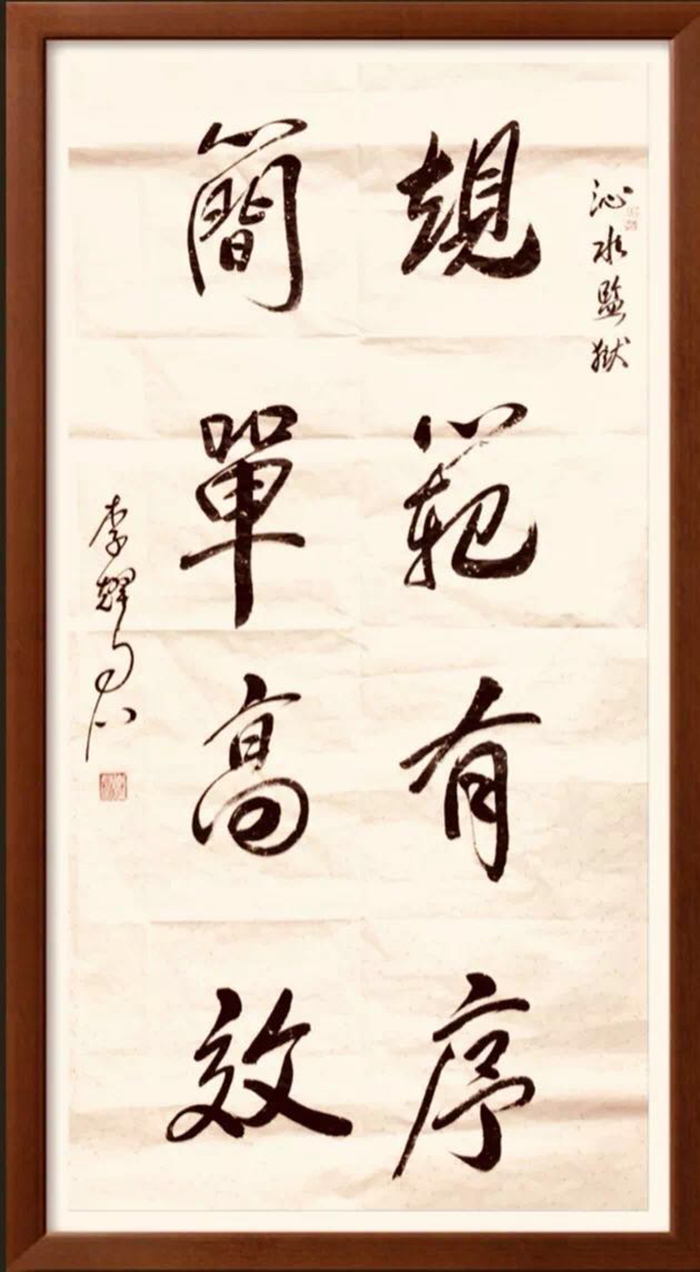 沁水監獄
規範有序
簡單高效
李輝